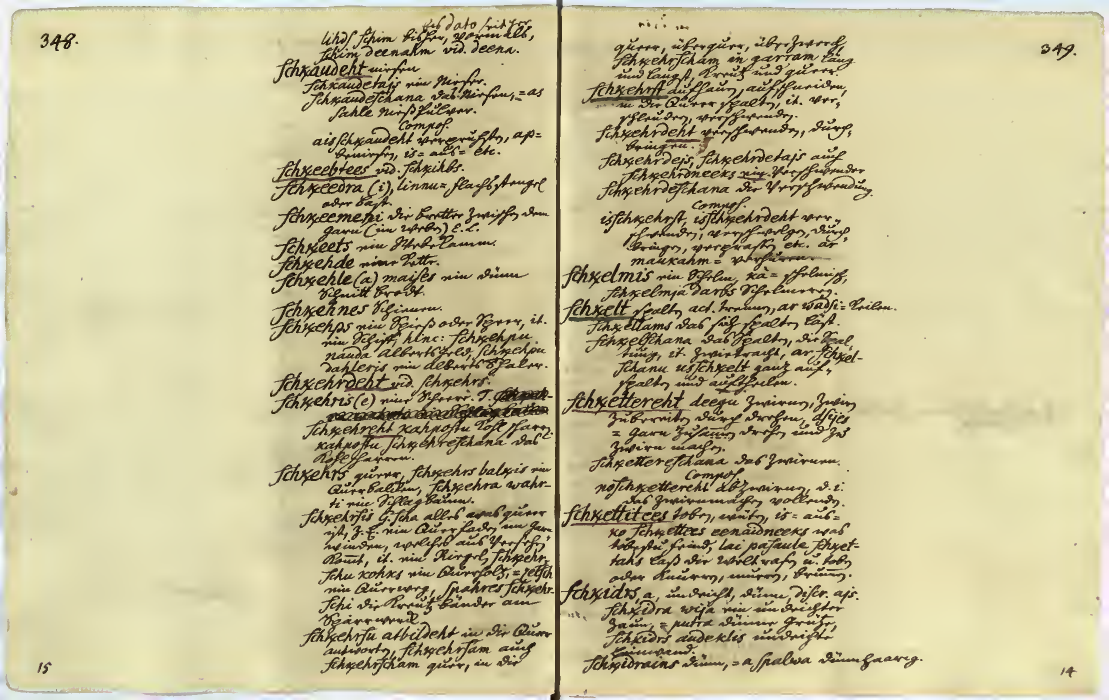 348.
lihds schim bisher, vormals,
schim deenahm vid. deena.
schkaudeht niesen
schkaudetajs ein Nieser.
schkaudeschana das Niesen, = as
sahle Nießpulver.
Compos.
aisschkaudeht verpruhsten, ap=
beniesen, is= aus= etc.
schkeebtees vid. schkihbs.
schkeedra (i), linnu= flachsstengel
oder bast.
schkeemeni die bretter zwischen dem
garn (in weben) E. L.
schkeets ein Weberkamm.
schkehde eine Kette.
schkehle (a) maises ein dünn
Schnitt brodt.
schkehnnes Schienen.
schkehps ein Spieß oder Speer, it.
ein Schiff, hinc: schkehpu
nauda Albertsgeld, schkehpu
dahleris ein Alberts Thaler.
schkehrdeht vid. schkehrs.
schkehris (e) eine Scheere. T.
schkehreht kahpostu Kohl scharren
kahpostu schkehreschana das
Kohlscharren.
schkehrs queer, schkehrs balkis ein
Queerbalken, schkehrs wahr=
ti ein Schlagbaum.
schkehrsis G. scha alles was queer
ist, z. E. ein Queerfaden im Garn
winden, welches aus Versehen
komt, it. ein Riegel, schkehr=
schu kohks ein Queerholz, = zelsch
ein Queerweg, spahres schkehr=
schi die Kreutz bänder am
Sparrwerck
schkehrsu atbildeht in die Queer
antworten, schkehrsam auch
schkehrscham queer, in die
15
349.
queer, überqueer, überzwerch,
schkehrscham in garram läng
und langst, Kreutz und queer.
schkehrst aufhauen, aufschneiden,
in die Queer spalten, it. ver=
schleudern, verschwenden.
schkehrdeht verschwenden, durch=
bringen.
schkehrdejs, schkehrdetajs auch
schkehrdneeks ein Verschwender
schkehrdeschana die Verschwendung
Compos.
isschkehrst, isschkehrdeht ver=
schwenden, verschwelgen, durch
bringen, verprassen etc. ar
schkelmis ein Schelm, kä= schelmisch,
schkelmja darbs Schelmerey.
schkelt spalten act. trennen, ar wadsi= Keilen.
schkellams das sich spalten läßt.
schkelschana das Spalten, die Spal=
tung, it. Zwietracht, ar schkel=
schanu usschkelt ganz auf=
spalten und auftheilen.
schkettereht deegu Zwirnen, Zwirn
zubereiten durch drehen, dsijes
= garn zusammen drehen und zu
zwirn machen.
schkettereschana das Zwirnen.
Compos.
noschkettereht abzwirnen, d. i.
das Zwirnmachen vollenden.
schkettitees toben, wüten, is= aus=
ko schkettees eenaidneeks was
tobestu feind, lai pasaule schket=
tahs laß die Welt rasen u. toben
oder knurren, murren, brumen.
schkidrs, a, undicht, dünn, discr. ajs.
schkidra wija ein undichter
Zaun, = putra dünne Grütze,
schkidrs audeklis undichte
Leinwand.
schkidrains dünn, = a spalwa dünnhaarig.
14